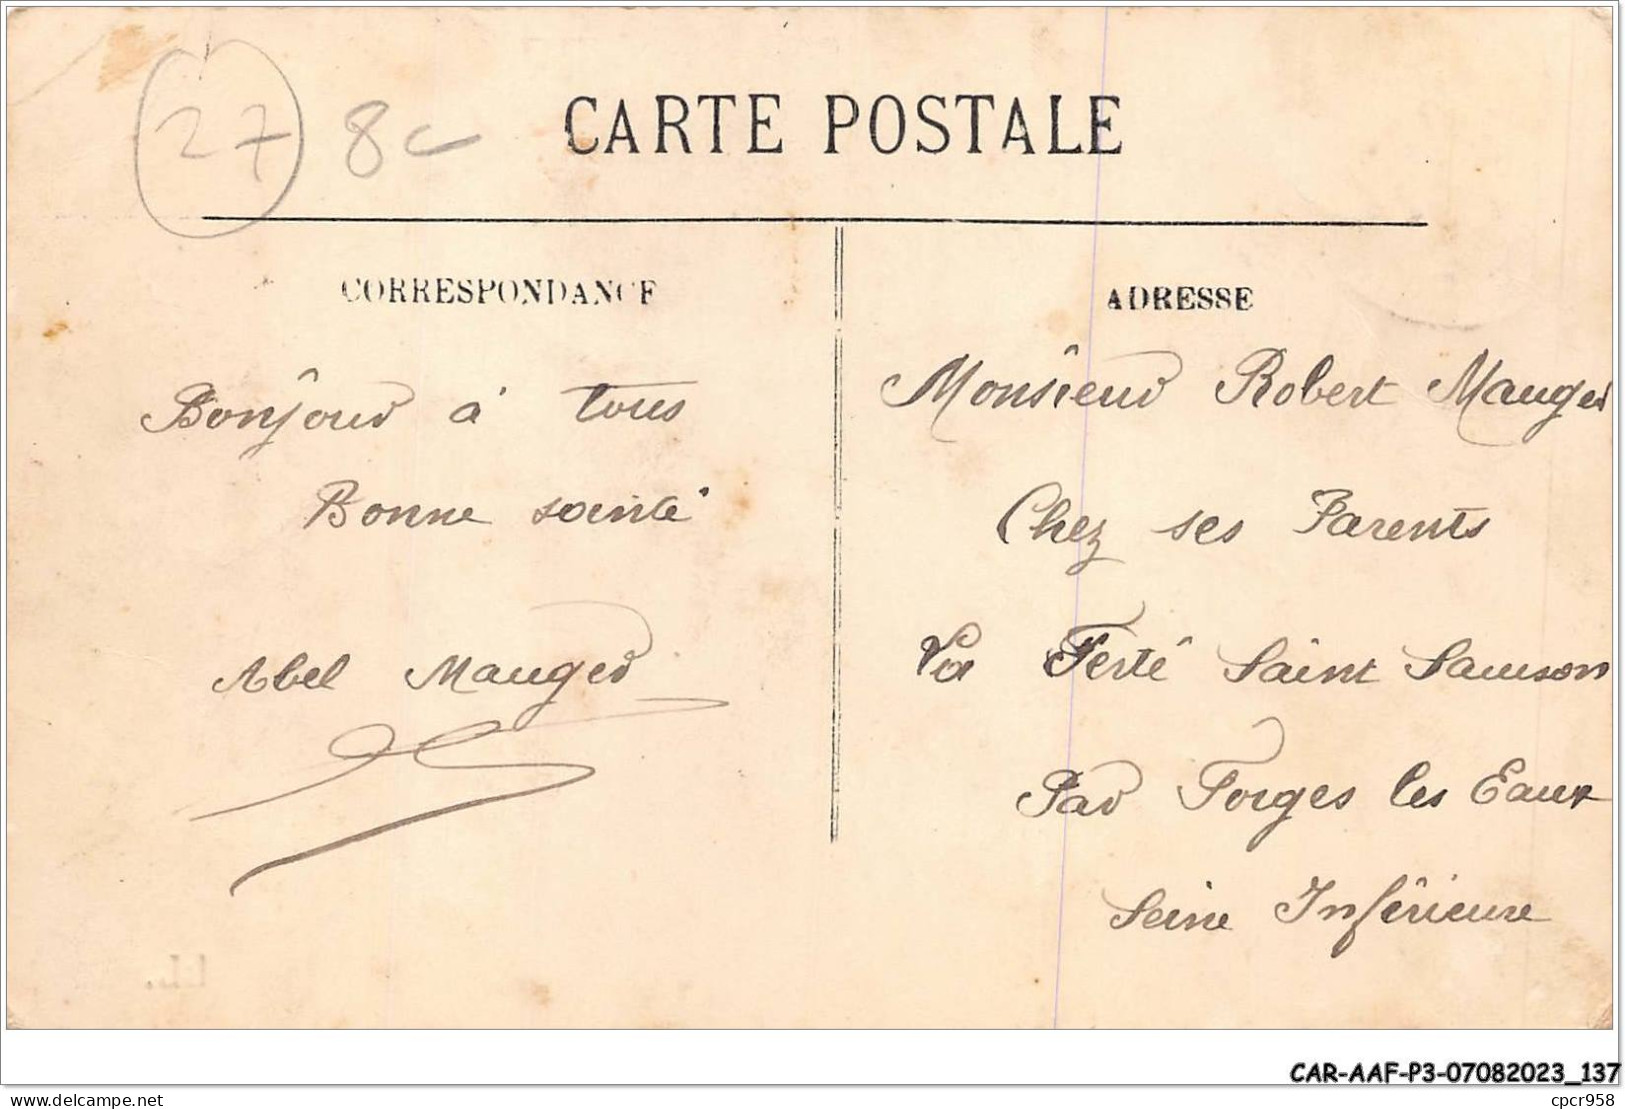 27 8c
CARTE POSTALE
CORRESPONDANCE
Bonjour à tous
Bonne santé
Abel Mauger
ADRESSE
Monsieur Robert Mauger
Chez ses Parents
La Ferté Saint Samson
Par Forges les Eaux
Seine Inférieure
CAR-AAF-P3-07082023_137
delcampe.net
cpcr958